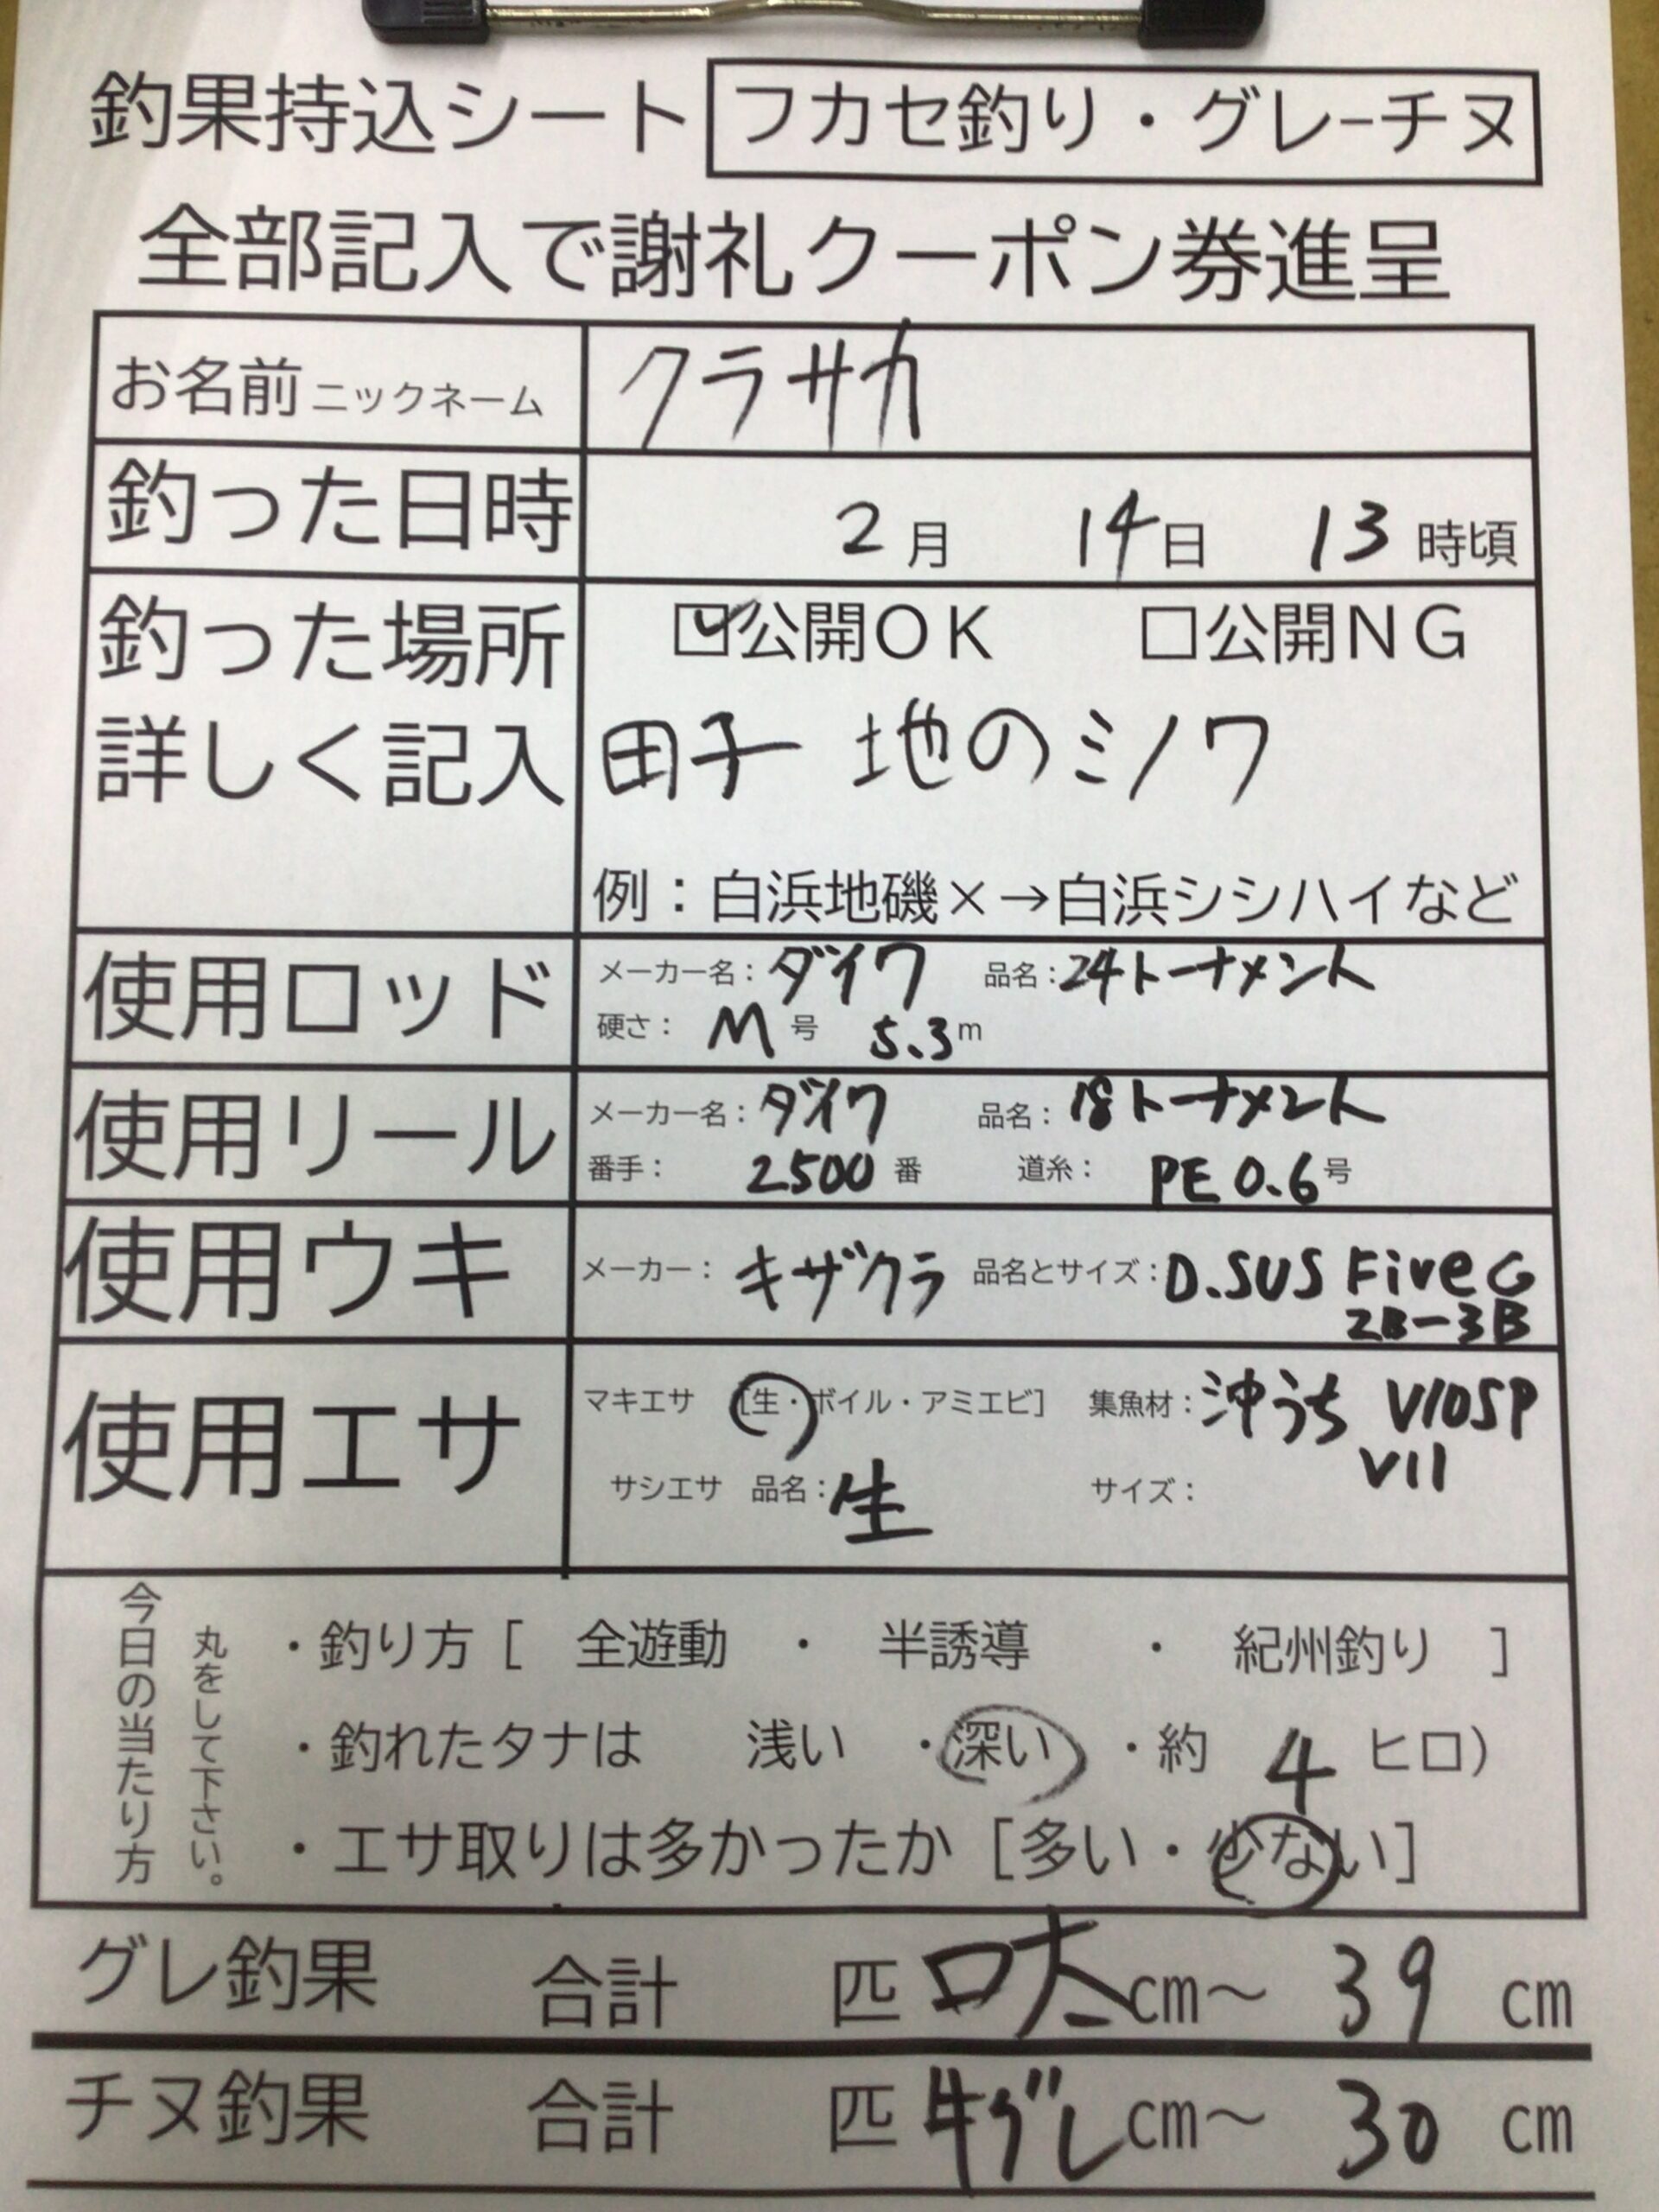 釣果持込シート フカセ釣り・グレ-チヌ
全部記入で謝礼クーポン券進呈
お名前 ニックネーム クラサカ
釣った日時 2月 14日 13時頃
釣った場所 ☑公開OK □公開NG
詳しく記入 田子 地のミノワ
例：白浜地磯×→白浜シシハイなど
使用ロッド メーカー名：ダイワ 品名：24トーナメント
硬さ： M 号 5.3m
使用リール メーカー名：ダイワ 品名：18トーナメント
番手： 2500番 道糸： PE 0.6号
使用ウキ メーカー：キザクラ 品名とサイズ：D.SUS Five G
2B-3B
使用エサ マキエサ [生・ボイル・アミエビ] 集魚材：沖うち V10SP
V11
サシエサ 品名：生 サイズ：
今日の当たり方
丸をして下さい。
・釣り方［ 全遊動 ・ 半誘導 ・ 紀州釣り ］
・釣れたタナは 浅い ・深い ・約 4 ヒロ）
・エサ取りは多かったか［多い・少ない］
グレ釣果 合計 匹 口太cm〜 39 cm
チヌ釣果 合計 匹 キグレcm〜 30 cm